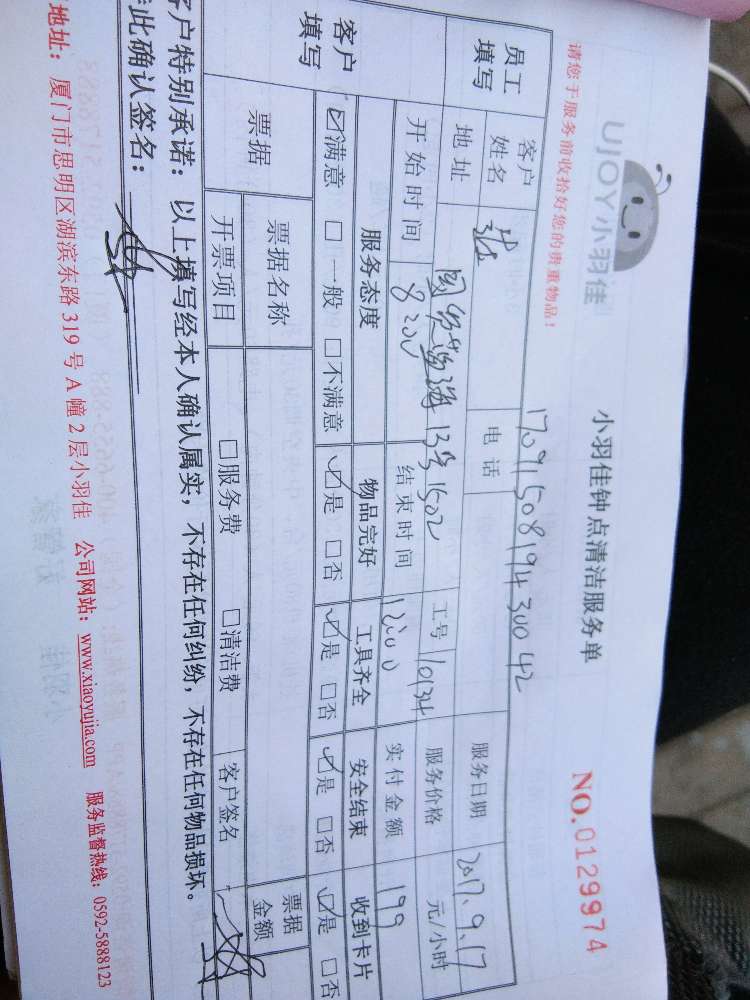 UJOY小羽佳
小羽佳钟点清洁服务单
NO.0129974
请您于服务前收拾好您的贵重物品!
1709150819430042
员工填写 客户姓名 张 电话 服务日期 2017.9.17
地址 13号1502 工号 10134 服务价格 元/小时
开始时间 8:00 结束时间 12:00 实付金额 199
客户填写 服务态度 物品完好 工具齐全 安全结束 收到卡片
☑满意 □一般 □不满意 ☑是 □否 ☑是 □否 ☑是 □否 ☑是 □否
票据 票据名称 票据金额
开票项目 □服务费 □清洁费 客户签名
客户特别承诺:以上填写经本人确认属实,不存在任何纠纷,不存在任何物品损坏。
此确认签名:
地址:厦门市思明区湖滨东路319号A幢2层小羽佳 公司网站:www.xiaoyujia.com 服务监督热线:0592-5888123